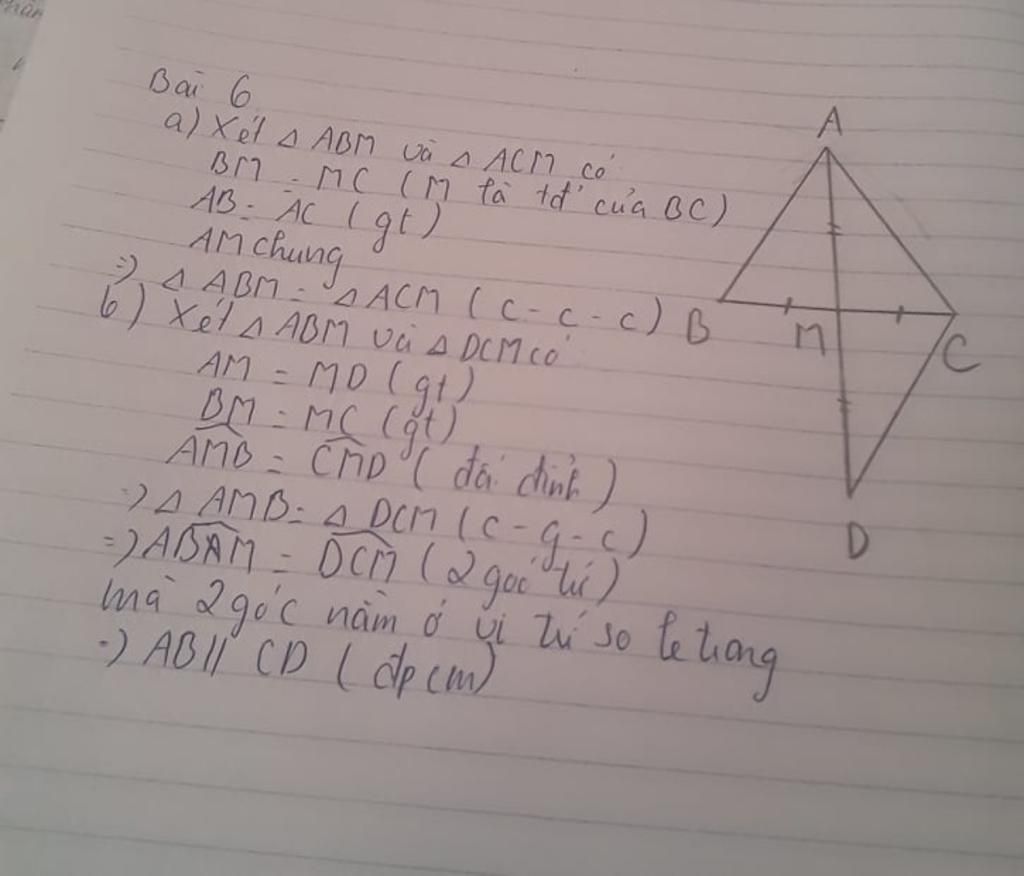 Bài 6
a) Xét △ ABM và △ ACM có
BM = MC (M là tđ của BC)
AB = AC (gt)
AM chung
=) △ ABM = △ ACM (c-c-c)
b) Xét △ ABM và △ DCM có
AM = MD (gt)
BM = MC (gt)
AMB = CMD (đối đỉnh)
=) △ AMB = △ DCM (c-g-c)
=) ABM = DCM (2 góc tứ)
mà 2 góc nằm ở vị trí so le trong
=) AB // CD (đpcm)
A
B
M
C
D